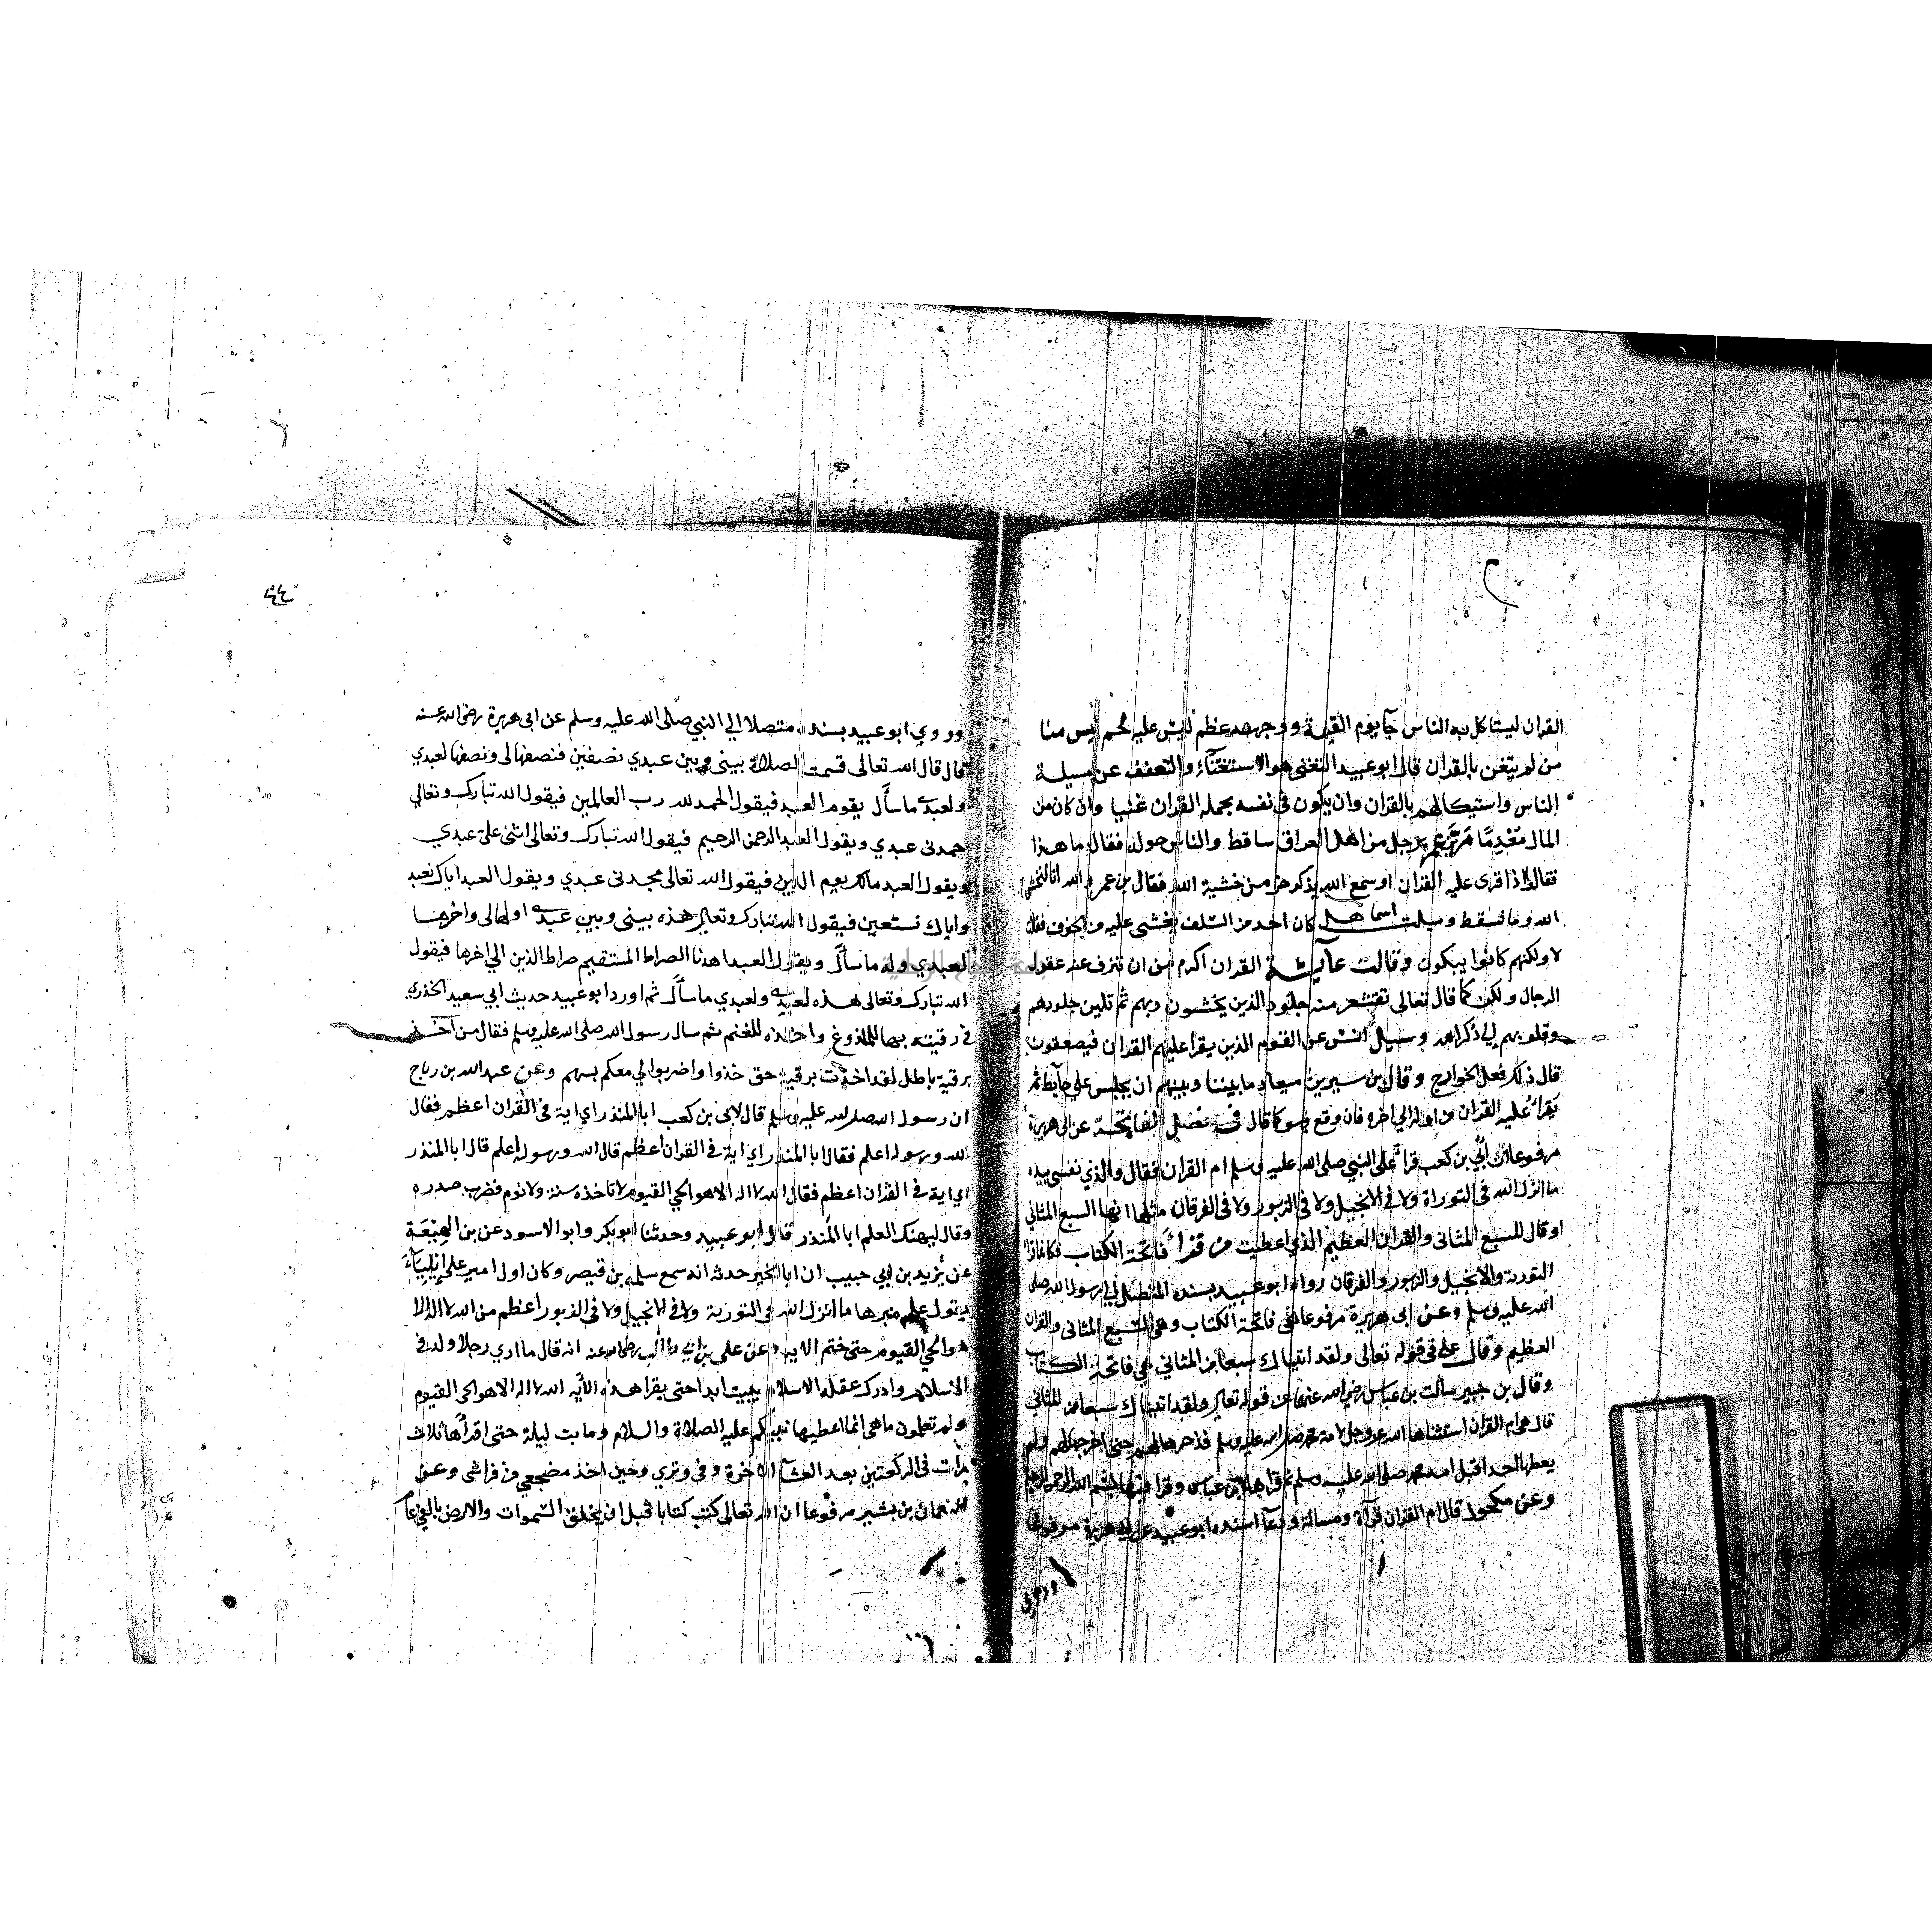 القران ليستاكل به الناس جآ يوم القيمة ووجهه عظم ليس عليه لحم ليس منا
من لم يتغن بالقران قال ابو عبيد التغنى هو الاستغنآء والتعفف عن مسيلة
الناس واستيكالهم بالقران وان يكون فى نفسه بحمله القران غنيا وان كان من
المال مُعْدِمًا مَرَّ برجل من اهل العراق ساقط والناس حوله فقال ما هذا
فقالوا اذا قرى عليه القران او سمع الله يذكر خر من خشية الله فقال بن عمر والله انا لنخشى
الله وما نسقط وسيلت اسما هل كان احد من السلف يغشى عليه من الخوف فقالت
لا ولكنهم كانوا يبكون وقالت عآيشة القران اكرم من ان تنزف عنه عقول
الرجال ولكن كما قال تعالى تقشعر منه جلود الذين يخشون ربهم ثم تلين جلودهم
وقلوبهم الي ذكر الله وسيل انس عن القوم الذين يقرا عليهم القران فيصعقون
قال ذلك فعل الخوارج وقال بن سيرين ميعاد ما بيننا وبينهم ان يجلس علي حآيط ثم
يقرا عليه القران من اوله الي اخره فان وقع فهو كما قال فى فضل الفاتحة عن ابى هريرة
مرفوعا ان ابي بن كعب قرا على النبي صلى الله عليه وسلم ام القران فقال والذي نفسى بيده
ما انزل الله فى التوراة ولا فى الانجيل ولا فى الزبور ولا فى الفرقان مثلها انها السبع المثاني
او قال للسبع المثانى والقران العظيم الذي اعطيت من قرا فاتحة الكتاب فكانما قرا
التورية والانجيل والزبور والفرقان رواه ابو عبيد بسنده المتصل الي رسول الله صلى
الله عليه وسلم وعن ابى هريرة مرفوعا هى فاتحة الكتاب وهى السبع المثانى والقران
العظيم وقال على فى قوله تعالى ولقد اتيناك سبعا من المثاني هي فاتحة الكتاب
وقال بن جبير سالت بن عباس رضي الله عنهما عن قوله تعالى ولقد اتيناك سبعا من المثاني
قال هى ام القران استثناها الله عز وجل لامة محمد صلى الله عليه وسلم فذخرها لهم حتى اخرجها لهم ولم
يعطها احد قبل امة محمد صلى الله عليه وسلم ثم قراها بن عباس وقرا فيها بسم الله الرحمن الرحيم
وعن مكحول قال ام القران قرآة ومسالة ودعآ اسنده ابو عبيد عن ابى هريرة مرفوعا
وروي
٤٤
وروي ابو عبيد بسنده متصلا الي النبي صلى الله عليه وسلم عن ابى هريرة رضى الله عنه
قال قال الله تعالى قسمت الصلاة بينى وبين عبدي نصفين فنصفها لى ونصفها لعبدي
ولعبدى ما سأل يقوم العبد فيقول الحمد لله رب العالمين فيقول الله تبارك وتعالي
حمدنى عبدي ويقول العبد الرحمن الرحيم فيقول الله تبارك وتعالى اثنى علي عبدي
ويقول العبد مالك يوم الدين فيقول الله تعالى مجدنى عبدي ويقول العبد اياك نعبد
واياك نستعين فيقول الله تبارك وتعالى هذه بينى وبين عبدى اولها لى واخرها
لعبدي وله ما سأل ويقول العبد اهدنا الصراط المستقيم صراط الذين الي اخرها فيقول
الله تبارك وتعالى هذه لعبدى ولعبدي ما سأل ثم اورد ابو عبيد حديث ابي سعيد الخدري
فى رقيته بها للملدوغ واخذه للغنم ثم سال رسول الله صلى الله عليه وسلم فقال من اخذ
برقية باطل لقد اخذت برقية حق خذوا واضربوا لي معكم بسهم وعن عبد الله بن رباح
ان رسول الله صلى الله عليه وسلم قال لابى بن كعب ابا المنذر اي اية فى القران اعظم فقال
الله ورسوله اعلم فقال ابا المنذر اي اية فى القران اعظم قال الله ورسوله اعلم قال ابا المنذر
اي اية فى القران اعظم فقال الله لا اله الا هو الحي القيوم لا تاخذه سنة ولا نوم فضرب صدره
وقال ليهنك العلم ابا المنذر قال ابو عبيد وحدثنا ابو بكر وابو الاسود عن بن لهيعة
عن يزيد بن ابي حبيب ان ابا الخير حدثه انه سمع سلمه بن قيصر وكان اول امير على ايلياء
يقول على منبرها ما انزل الله فى التورية ولا فى الانجيل ولا فى الزبور اعظم من الله لا اله الا
هو الحي القيوم حتى ختم الايه وعن على بن ابي طالب رضى الله عنه انه قال ما اري رجلا ولد فى
الاسلام وادرك عقله الاسلام يبيت ابدا حتى يقرا هذه الآيه الله لا اله الا هو الحى القيوم
ولو تعلمون ما هى انما اعطيها نبيكم عليه الصلاة والسلام وما بت ليلة حتى اقراها ثلاث
مرات فى الركعتين بعد العشآ الاخرة وفي وتري وحين اخذ مضجعي من فراشى وعن
النعمان بن بشير مرفوعا ان الله تعالى كتب كتابا قبل ان يخلق السموات والارض بالفي عام